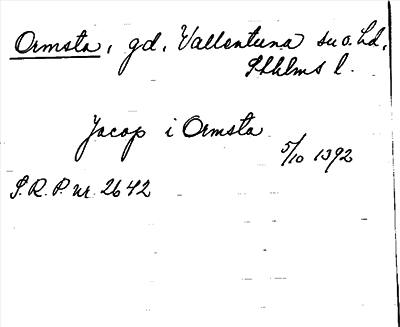 Ormsta, gd, Vallentuna sn o. hd,
Sthlms l.
Jacop i Ormsta
5/10 1392
S.R.P. nr. 2642